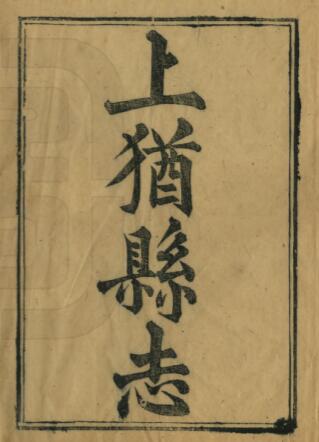 上猶縣志